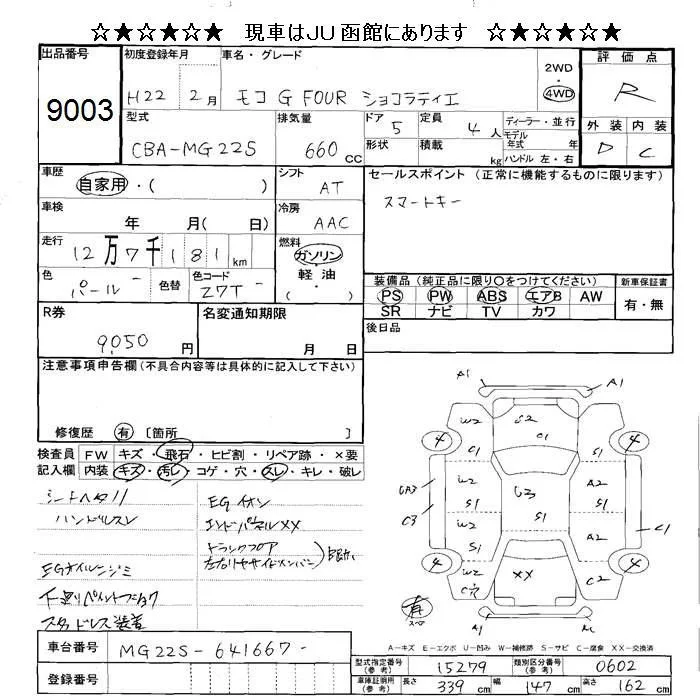 ☆★☆★☆★ 現車はJU函館にあります ☆★☆★☆★
出品番号
9003
初度登録年月
H22 2月
車名・グレード
モコ G FOUR ショコラティエ
2WD
4WD
評価点
R
外装 内装
D C
型式
CBA-MG22S
排気量
660 cc
ドア 5
定員 4人
形状
積載 kg
ディーラー・並行
モデル
年式 年
ハンドル 左・右
車歴
自家用・( )
シフト
AT
セールスポイント (正常に機能するものに限ります)
スマートキー
車検
年 月( 日)
冷房
AAC
走行
12万7千181km
燃料
ガソリン
軽油
( )
色
パール
色替
色コード
Z7T
装備品 (純正品に限り○をつけてください)
PS PW ABS エアB AW
SR ナビ TV カワ
新車保証書
有・無
R券
9,050 円
名変通知期限
月 日
後日品
注意事項申告欄 (不具合内容等は具体的に記入して下さい)
修復歴 有 〔箇所 〕
検査員
記入欄
FW キズ・飛石・ヒビ割・リペア跡・×要
内装 キズ・汚レ・コゲ・穴・スレ・キレ・破レ
シートヘタリ
ハンドルスレ
EGオイルニジミ
下廻りペイント
スタッドレス装着
EGイオン
エンドパネルXX
トランクフロア
左右リヤサイドメンバー
A1 A1
W2 S2 C1 S1
4 4
C1
W2 A2
S1 U3 S1
C3
W2 S1 A2 C1
S1
4 4
W2 XX C2
C穴
有
A1
A-キズ E-エクボ U-凹み W-補修跡 S-サビ C-腐食 XX-交換済
車台番号
MG22S-641667
登録番号
型式指定番号
(参考)
15279
類別区分番号
(参考)
0602
車庫証明用
(参考)
長さ 339 cm 幅 147 cm 高さ 162 cm